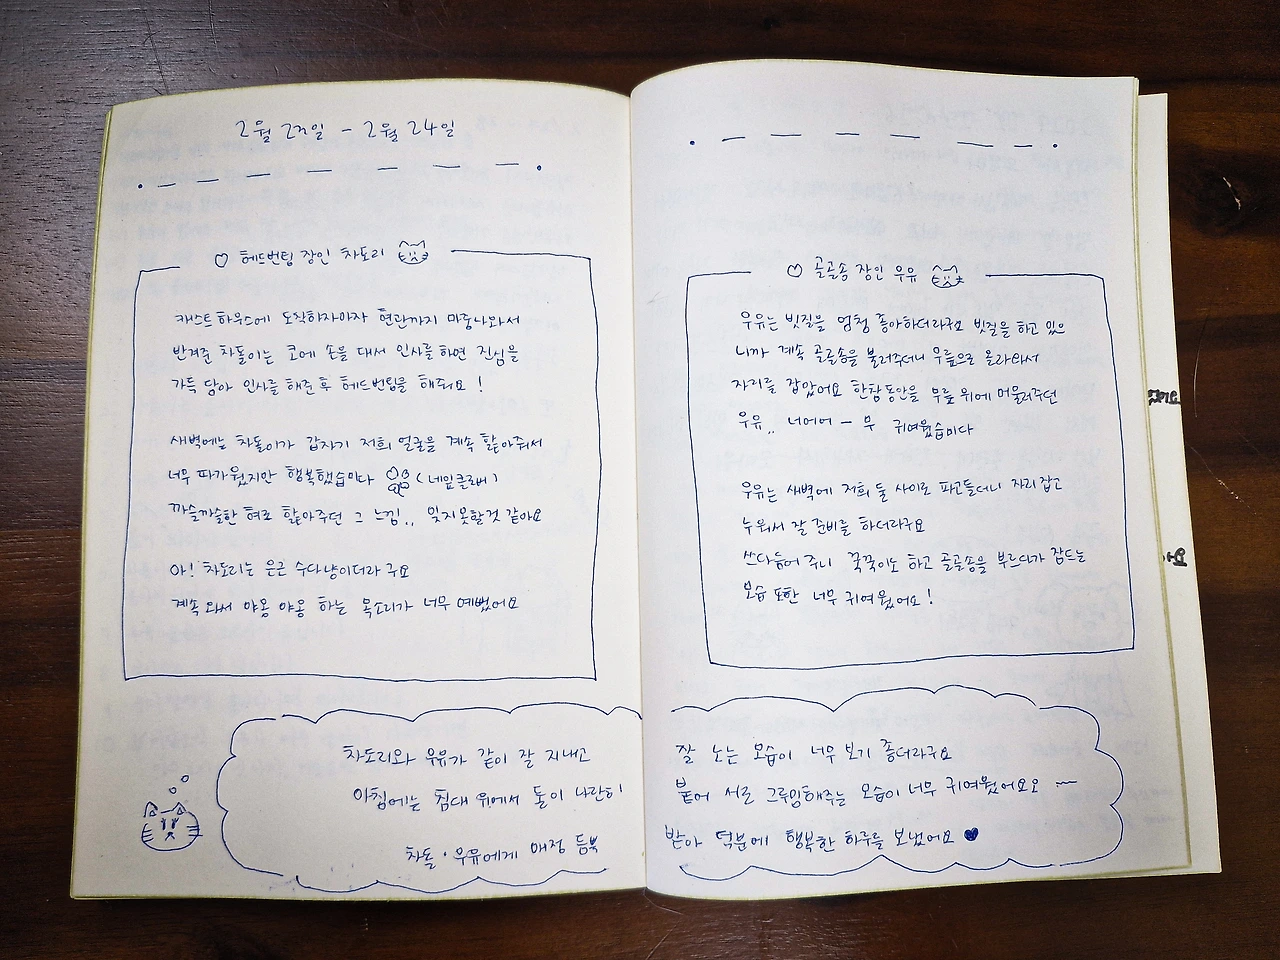 2월 23일 - 2월 24일
♡ 헤드번팅 장인 차도리
캐스트하우스에 도착하자마자 현관까지 마중나와서
반겨준 차돌이는 코에 손을 대서 인사를 하면 진심을
가득 담아 인사를 해준 후 헤드번팅을 해줘요!
새벽에는 차돌이가 갑자기 저희 얼굴을 계속 핥아줘서
너무 따가웠지만 행복했습미다 (네잎클로버)
까슬까슬한 혀로 핥아주던 그 느낌.. 잊지못할것 같아요
아! 차도리는 은근 수다냥이더라구요
계속 와서 야옹 야옹 하는 목소리가 너무 예뻤어요
♡ 골골송 장인 우유
우유는 빗질을 엄청 좋아하더라구요 빗질을 하고 있으
니까 계속 골골송을 불러주더니 무릎으로 올라와서
자리를 잡았어요 한참동안을 무릎 위에 머물러주던
우유.. 너어어-무 귀여웠습미다
우유는 새벽에 저희 둘 사이로 파고들더니 자리 잡고
누워서 잘 준비를 하더라구요
쓰다듬어 주니 꾹꾹이도 하고 골골송을 부르다가 잠드는
모습 또한 너무 귀여웠어요!
차도리와 우유가 같이 잘 지내고 잘 노는 모습이 너무 보기 좋더라구요
아침에는 침대 위에서 둘이 나란히 붙어 서로 그루밍해주는 모습이 너무 귀여웠어요오 ~
차돌·우유에게 애정 듬뿍 받아 덕분에 행복한 하루를 보냈어요 ♥